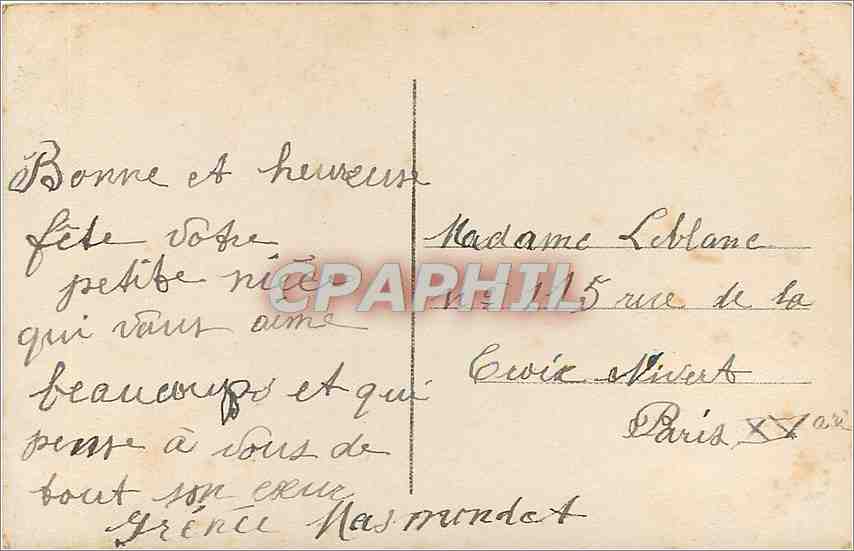 Bonne et heureuse
fête votre
petite nièce
qui vous aime
beaucoups et qui
pense à vous de
tout son cœur
Madame Leblanc
N° 115 rue de la
Croix Nivert
Paris XV
CPAPHIL